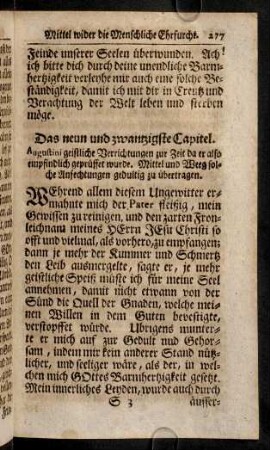 Mittel wider die Menschliche Ehrfurcht. 277
Feinde unserer Seelen überwunden. Ach!
ich bitte dich durch deine unendliche Barm-
hertzigkeit verleyhe mir auch eine solche Be-
ständigkeit, damit ich mit dir in Creutz und
Verachtung der Welt leben und sterben
möge.
Das neun und zwantzigste Capitel.
Augustini geistliche Verrichtungen zur Zeit da er also
empfindlich geprüffet wurde. Mittel und Weeg sol-
che Anfechtungen gedultig zu übertragen.
WEhrend allem diesem Ungewitter er-
mahnte mich der Pater fleißig, mein
Gewissen zu reinigen, und den zarten Fron-
leichnam meines HErrn JEsu Christi so
offt und vielmal, als vorhero, zu empfangen:
dann je mehr der Kummer und Schmertz
den Leib ausmergelte, sagte er, je mehr
geistliche Speiß müsse ich für meine Seel
annehmen, damit nicht etwann von der
Sünd die Quell der Gnaden, welche mei-
nen Willen in dem Guten bevestigte,
verstopffet würde. Ubrigens munter-
te er mich auf zur Gedult und Gehor-
sam, indem mir kein anderer Stand nütz-
licher, und seeliger wäre, als der, in wel-
chen mich GOttes Barmhertzigkeit gesetzt.
Mein innerliches Leyden, wurde auch durch
S 3 äusser-